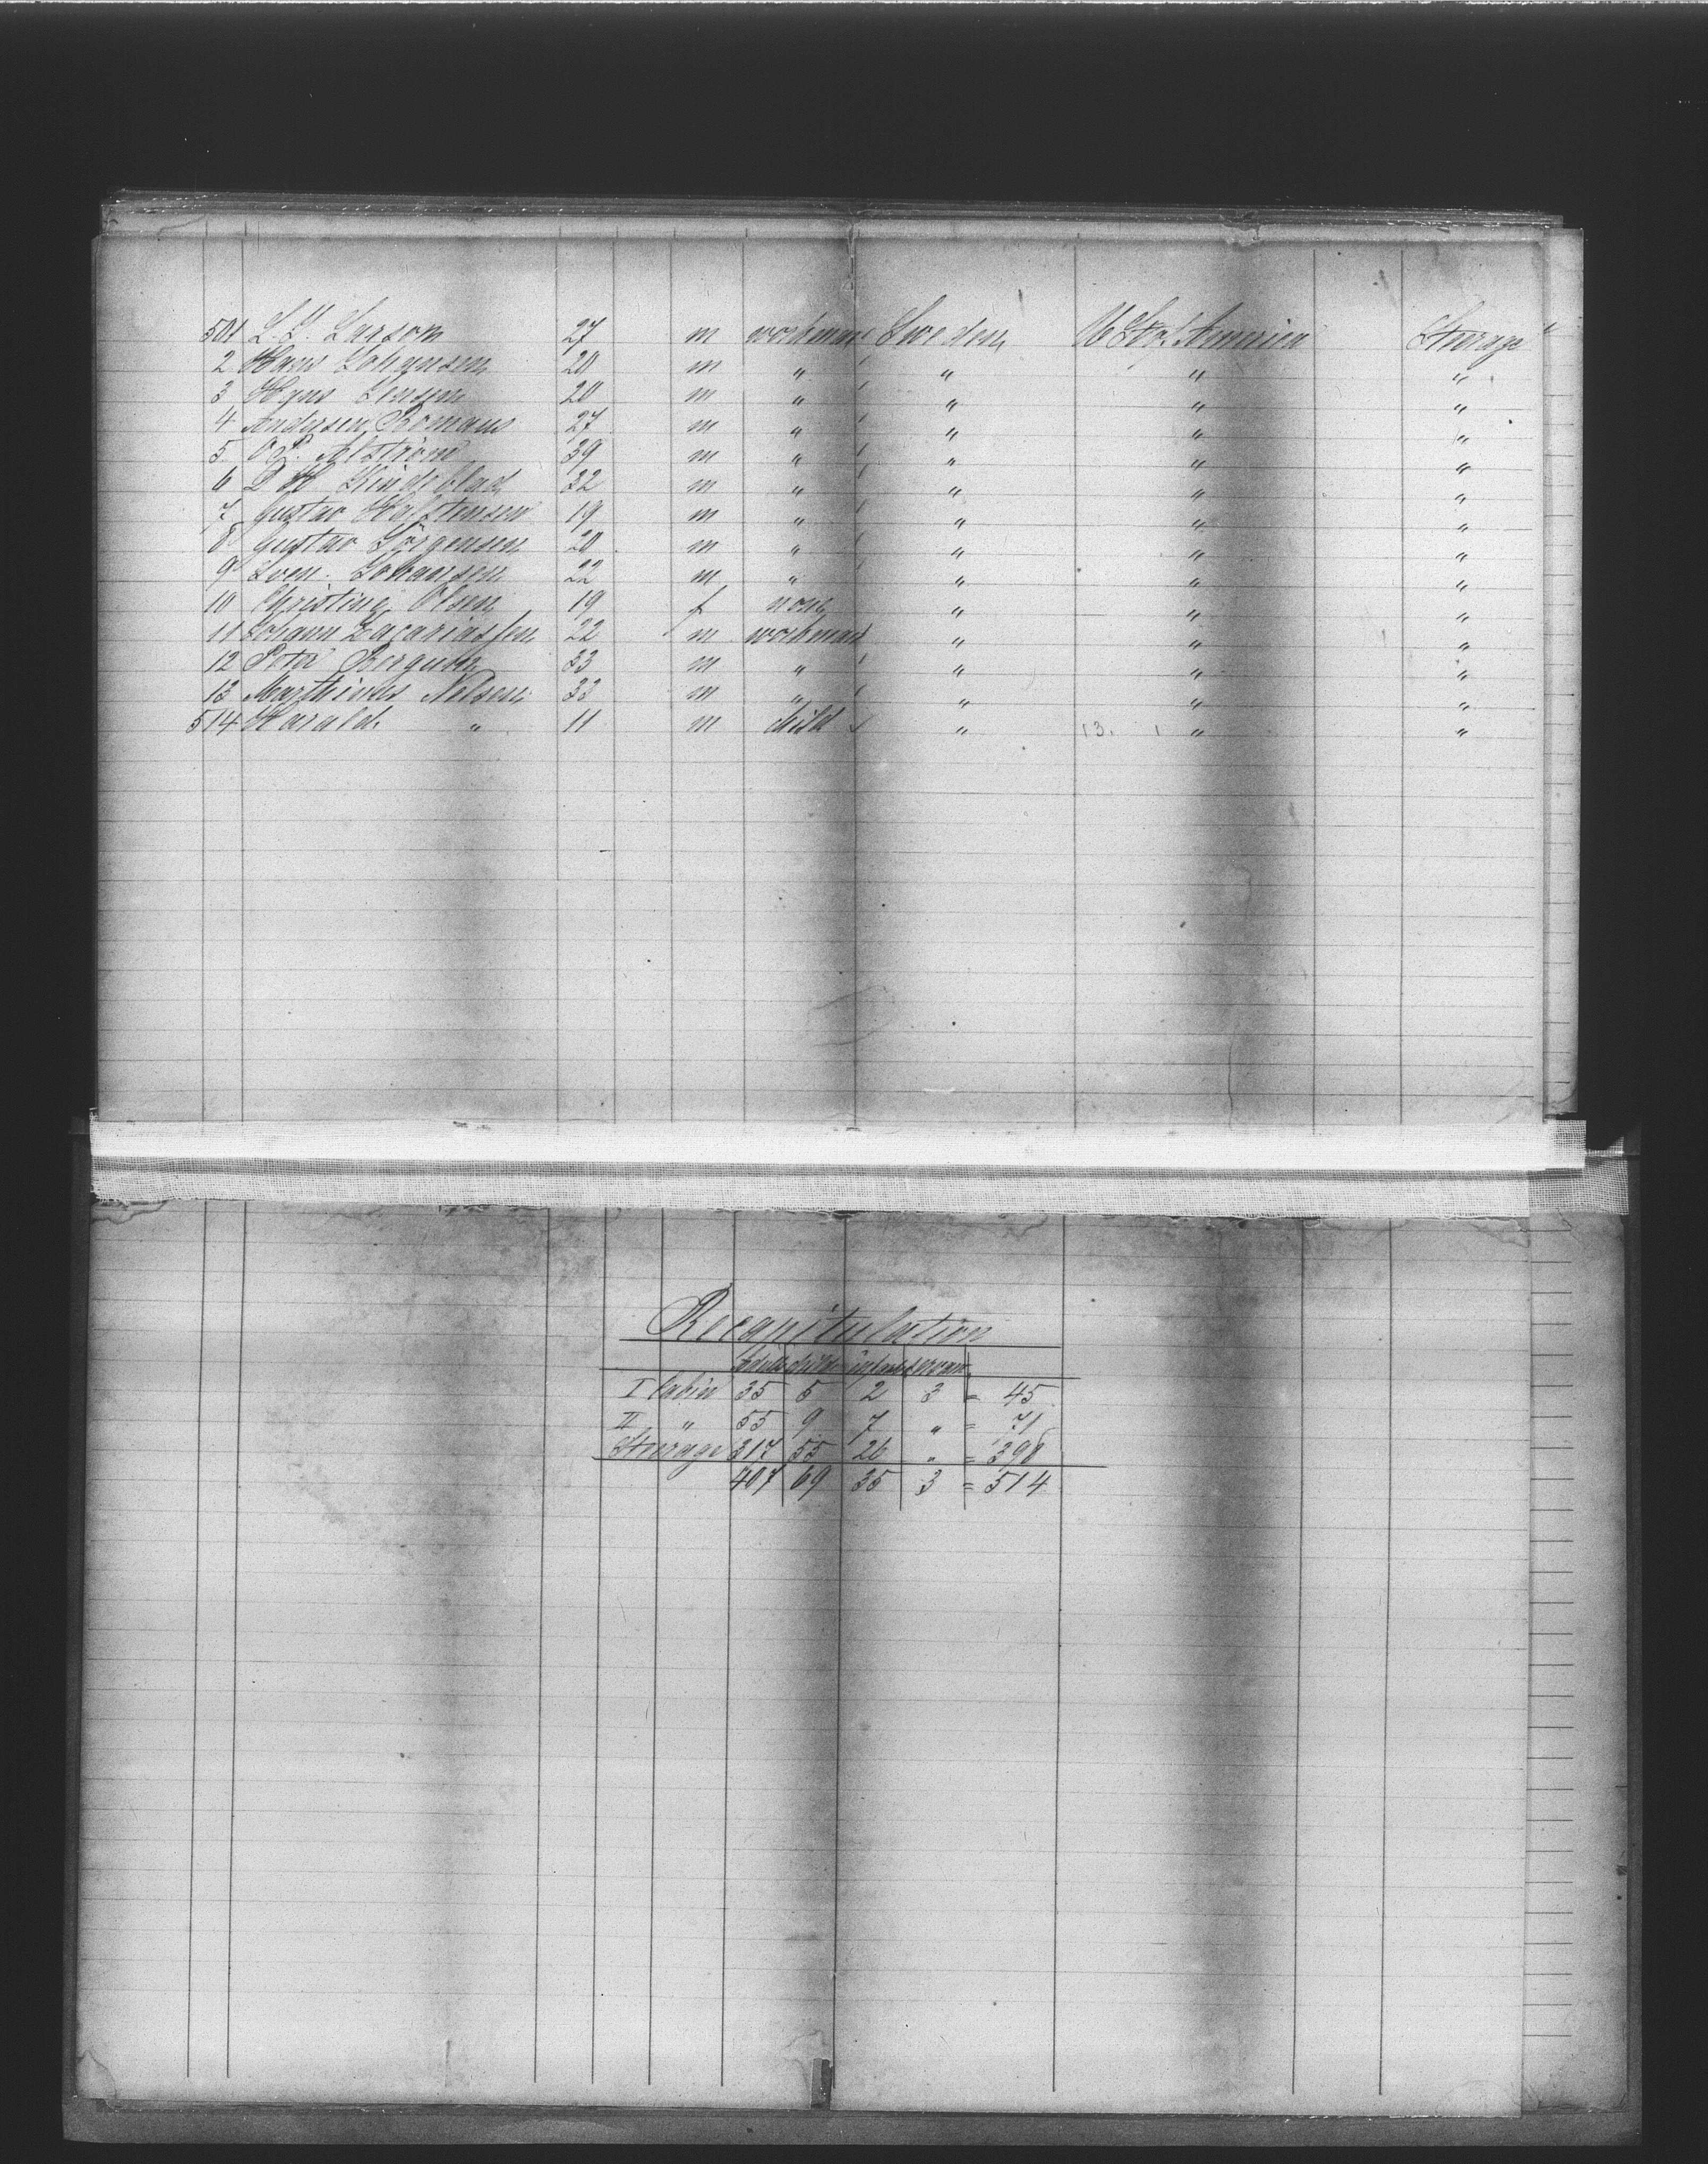 501 L. Larsom 27 m workman Sweden U St of America Steerage
2 Hans Johansen 20 m " " " "
3 Hans Jensen 20 m " " " "
4 Andersen Romans 27 m " " " "
5 Alström 39 m " " " "
6 Lindeblad 32 m " " " "
7 Gustav Halstensen 19 m " " " "
8 Gustav Jörgensen 20 m " " " "
9 Sven Johansen 22 m " " " "
10 Christine Olsen 19 f none " " "
11 Johann Zacariassen 22 m workman " " "
12 Peter Bergman 33 m " " " "
13 Marthinus Nelsen 33 m " " " "
514 Harald " 11 m child " 13. " "
Recapitulation
Adults childr infants servan
I Cabin 35 5 2 3 = 45
II " 55 9 7 " = 71
Steerage 317 55 26 " = 398
407 69 35 3 = 514